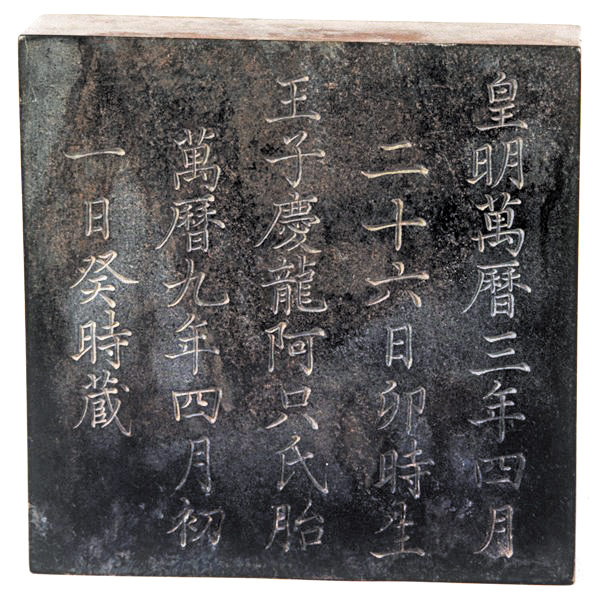 皇明萬曆三年四月
二十六日卯時生
王子慶龍阿只氏胎
萬曆九年四月初
一日癸時蔵